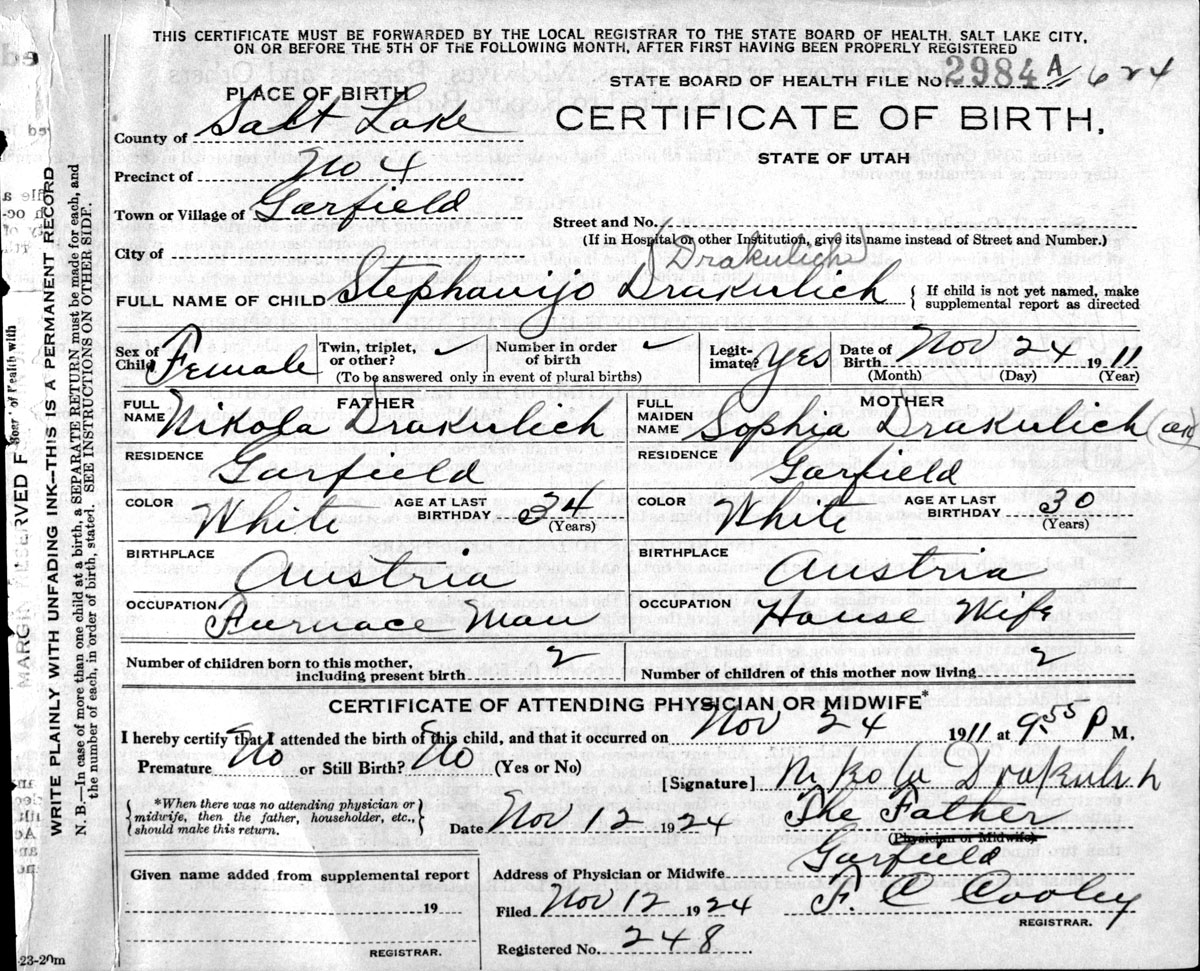 THIS CERTIFICATE MUST BE FORWARDED BY THE LOCAL REGISTRAR TO THE STATE BOARD OF HEALTH, SALT LAKE CITY,
ON OR BEFORE THE 5TH OF THE FOLLOWING MONTH, AFTER FIRST HAVING BEEN PROPERLY REGISTERED
STATE BOARD OF HEALTH FILE NO. 2984 A/624
PLACE OF BIRTH
CERTIFICATE OF BIRTH,
STATE OF UTAH
County of Salt Lake
Precinct of No 4
Town or Village of Garfield
Street and No.
(If in Hospital or other Institution, give its name instead of Street and Number.)
City of
(Drakulich)
FULL NAME OF CHILD Stephanijo Drakulich { If child is not yet named, make
supplemental report as directed
Sex of Child Female
Twin, triplet, or other? ✓
Number in order of birth ✓
(To be answered only in event of plural births)
Legitimate? Yes
Date of Birth Nov 24 1911
(Month) (Day) (Year)
FATHER
FULL NAME Nikola Drakulich
MOTHER
FULL MAIDEN NAME Sophia Drakulich
RESIDENCE Garfield
RESIDENCE Garfield
COLOR White AGE AT LAST BIRTHDAY 34 (Years)
COLOR White AGE AT LAST BIRTHDAY 30 (Years)
BIRTHPLACE Austria
BIRTHPLACE Austria
OCCUPATION Furnace Man
OCCUPATION House Wife
Number of children born to this mother, including present birth 2
Number of children of this mother now living 2
CERTIFICATE OF ATTENDING PHYSICIAN OR MIDWIFE*
I hereby certify that I attended the birth of this child, and that it occurred on Nov 24 1911 at 9 55 P M.
Premature No or Still Birth? No (Yes or No)
[Signature] Nikola Drakulich
{ *When there was no attending physician or
midwife, then the father, householder, etc.,
should make this return. }
Date Nov 12 1924
The Father
(Physician or Midwife)
Given name added from supplemental report
19
REGISTRAR.
Address of Physician or Midwife Garfield
Filed Nov 12 1924 F. C Cooley
REGISTRAR.
Registered No. 248
23-20m
MARGIN RESERVED F
WRITE PLAINLY WITH UNFADING INK—THIS IS A PERMANENT RECORD
N. B.—In case of more than one child at a birth, a SEPARATE RETURN must be made for each, and
the number of each, in order of birth, stated. SEE INSTRUCTIONS ON OTHER SIDE.